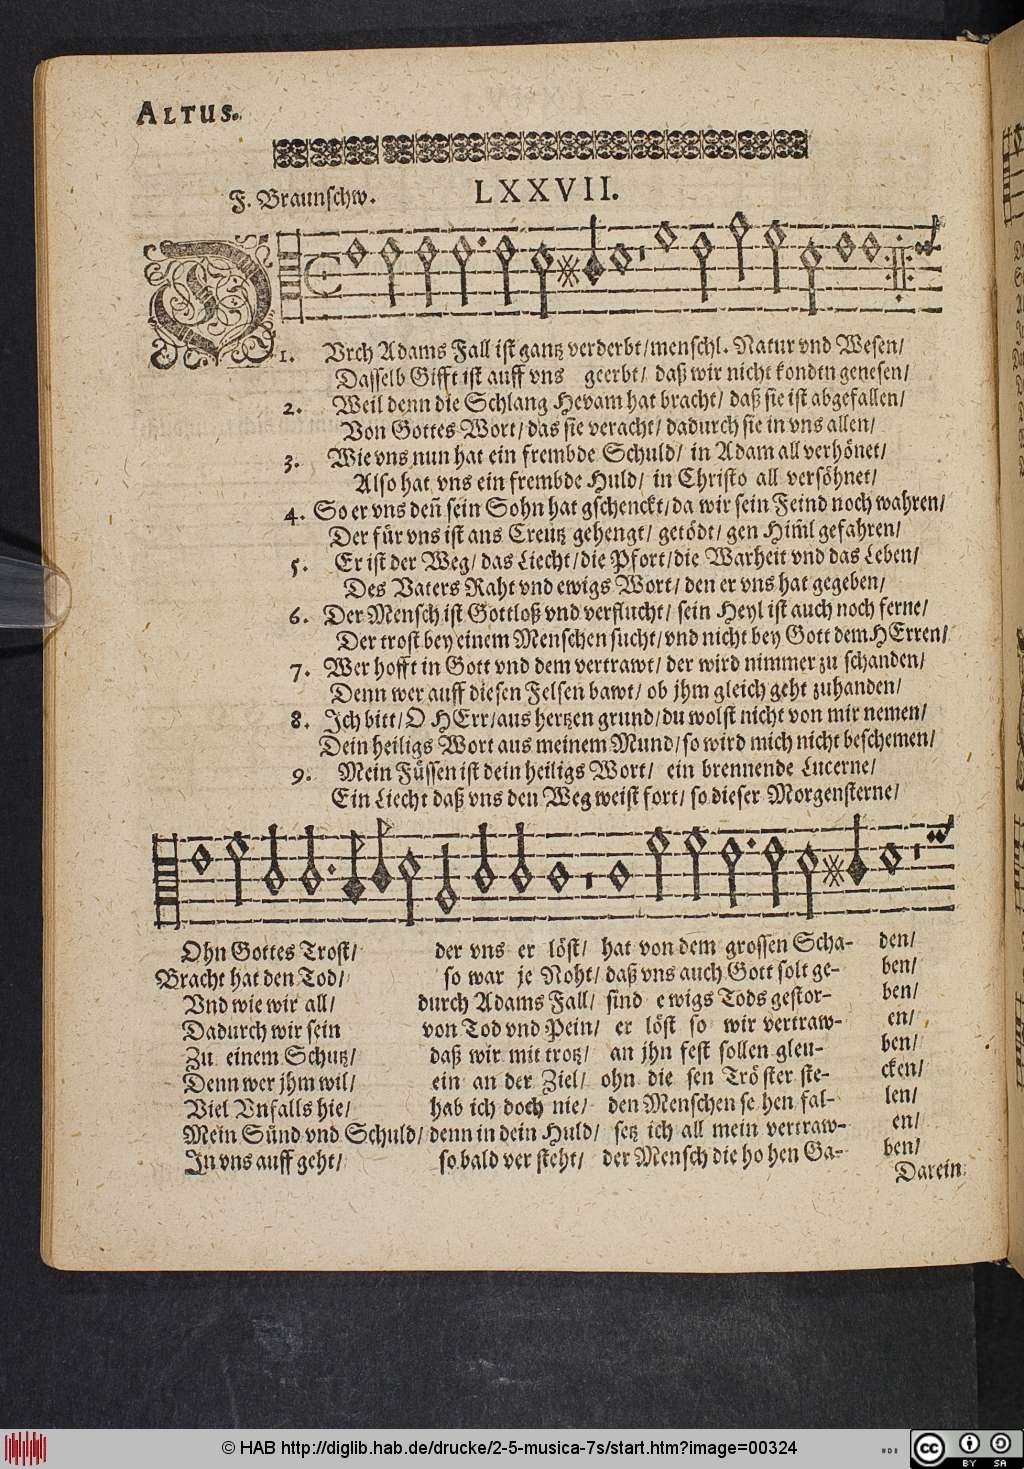 ALTUS.
F. Braunschw.
LXXVII.
D
1. Vrch Adams Fall ist gantz verderbt/menschl. Natur vnd Wesen/
Dasselb Gifft ist auff vns geerbt/ daß wir nicht kondtn genesen/
2. Weil denn die Schlang Hevam hat bracht/ daß sie ist abgefallen/
Von Gottes Wort/ das sie veracht/ dadurch sie in vns allen/
3. Wie vns nun hat ein frembde Schuld/ in Adam all verhönet/
Also hat vns ein frembde Huld/ in Christo all versöhnet/
4. So er vns deñ sein Sohn hat gschenckt/da wir sein Feind noch wahren/
Der für vns ist ans Creutz gehengt/ getödt/ gen Him̃l gefahren/
5. Er ist der Weg/ das Liecht/die Pfort/die Warheit vnd das Leben/
Des Vaters Raht vnd ewigs Wort/ den er vns hat gegeben/
6. Der Mensch ist Gottloß vnd verflucht/ sein Heyl ist auch noch ferne/
Der trost bey einem Menschen sucht/ vnd nicht bey Gott dem HErren/
7. Wer hofft in Gott vnd dem vertrawt/ der wird nimmer zu schanden/
Denn wer auff diesen Felsen bawt/ ob jhm gleich geht zuhanden/
8. Ich bitt/ O HErr/aus hertzen grund/du wolst nicht von mir nemen/
Dein heiligs Wort aus meinem Mund/so wird mich nicht beschemen/
9. Mein Füssen ist dein heiligs Wort/ ein brennende Lucerne/
Ein Liecht daß vns den Weg weist fort/ so dieser Morgensterne/
Ohn Gottes Trost/ der vns er löst/ hat von dem grossen Scha- den/
Bracht hat den Tod/ so war je Noht/ daß vns auch Gott solt ge- ben/
Vnd wie wir all/ durch Adams Fall/ sind ewigs Tods gestor- ben/
Dadurch wir sein von Tod vnd Pein/ er löst so wir vertraw- en/
Zu einem Schutz/ daß wir mit trotz/ an jhn fest sollen gleu- ben/
Denn wer jhm wil/ ein an der Ziel/ ohn die sen Trö ster ste- cken/
Viel Vnfalls hie/ hab ich doch nie/ den Menschen se hen fal- len/
Mein Sünd vnd Schuld/ denn in dein Huld/ setz ich all mein vertraw- en/
In vns auff geht/ so bald ver steht/ der Mensch die ho hen Ga- ben/
Darein
© HAB http://diglib.hab.de/drucke/2-5-musica-7s/start.htm?image=00324
cc BY SA